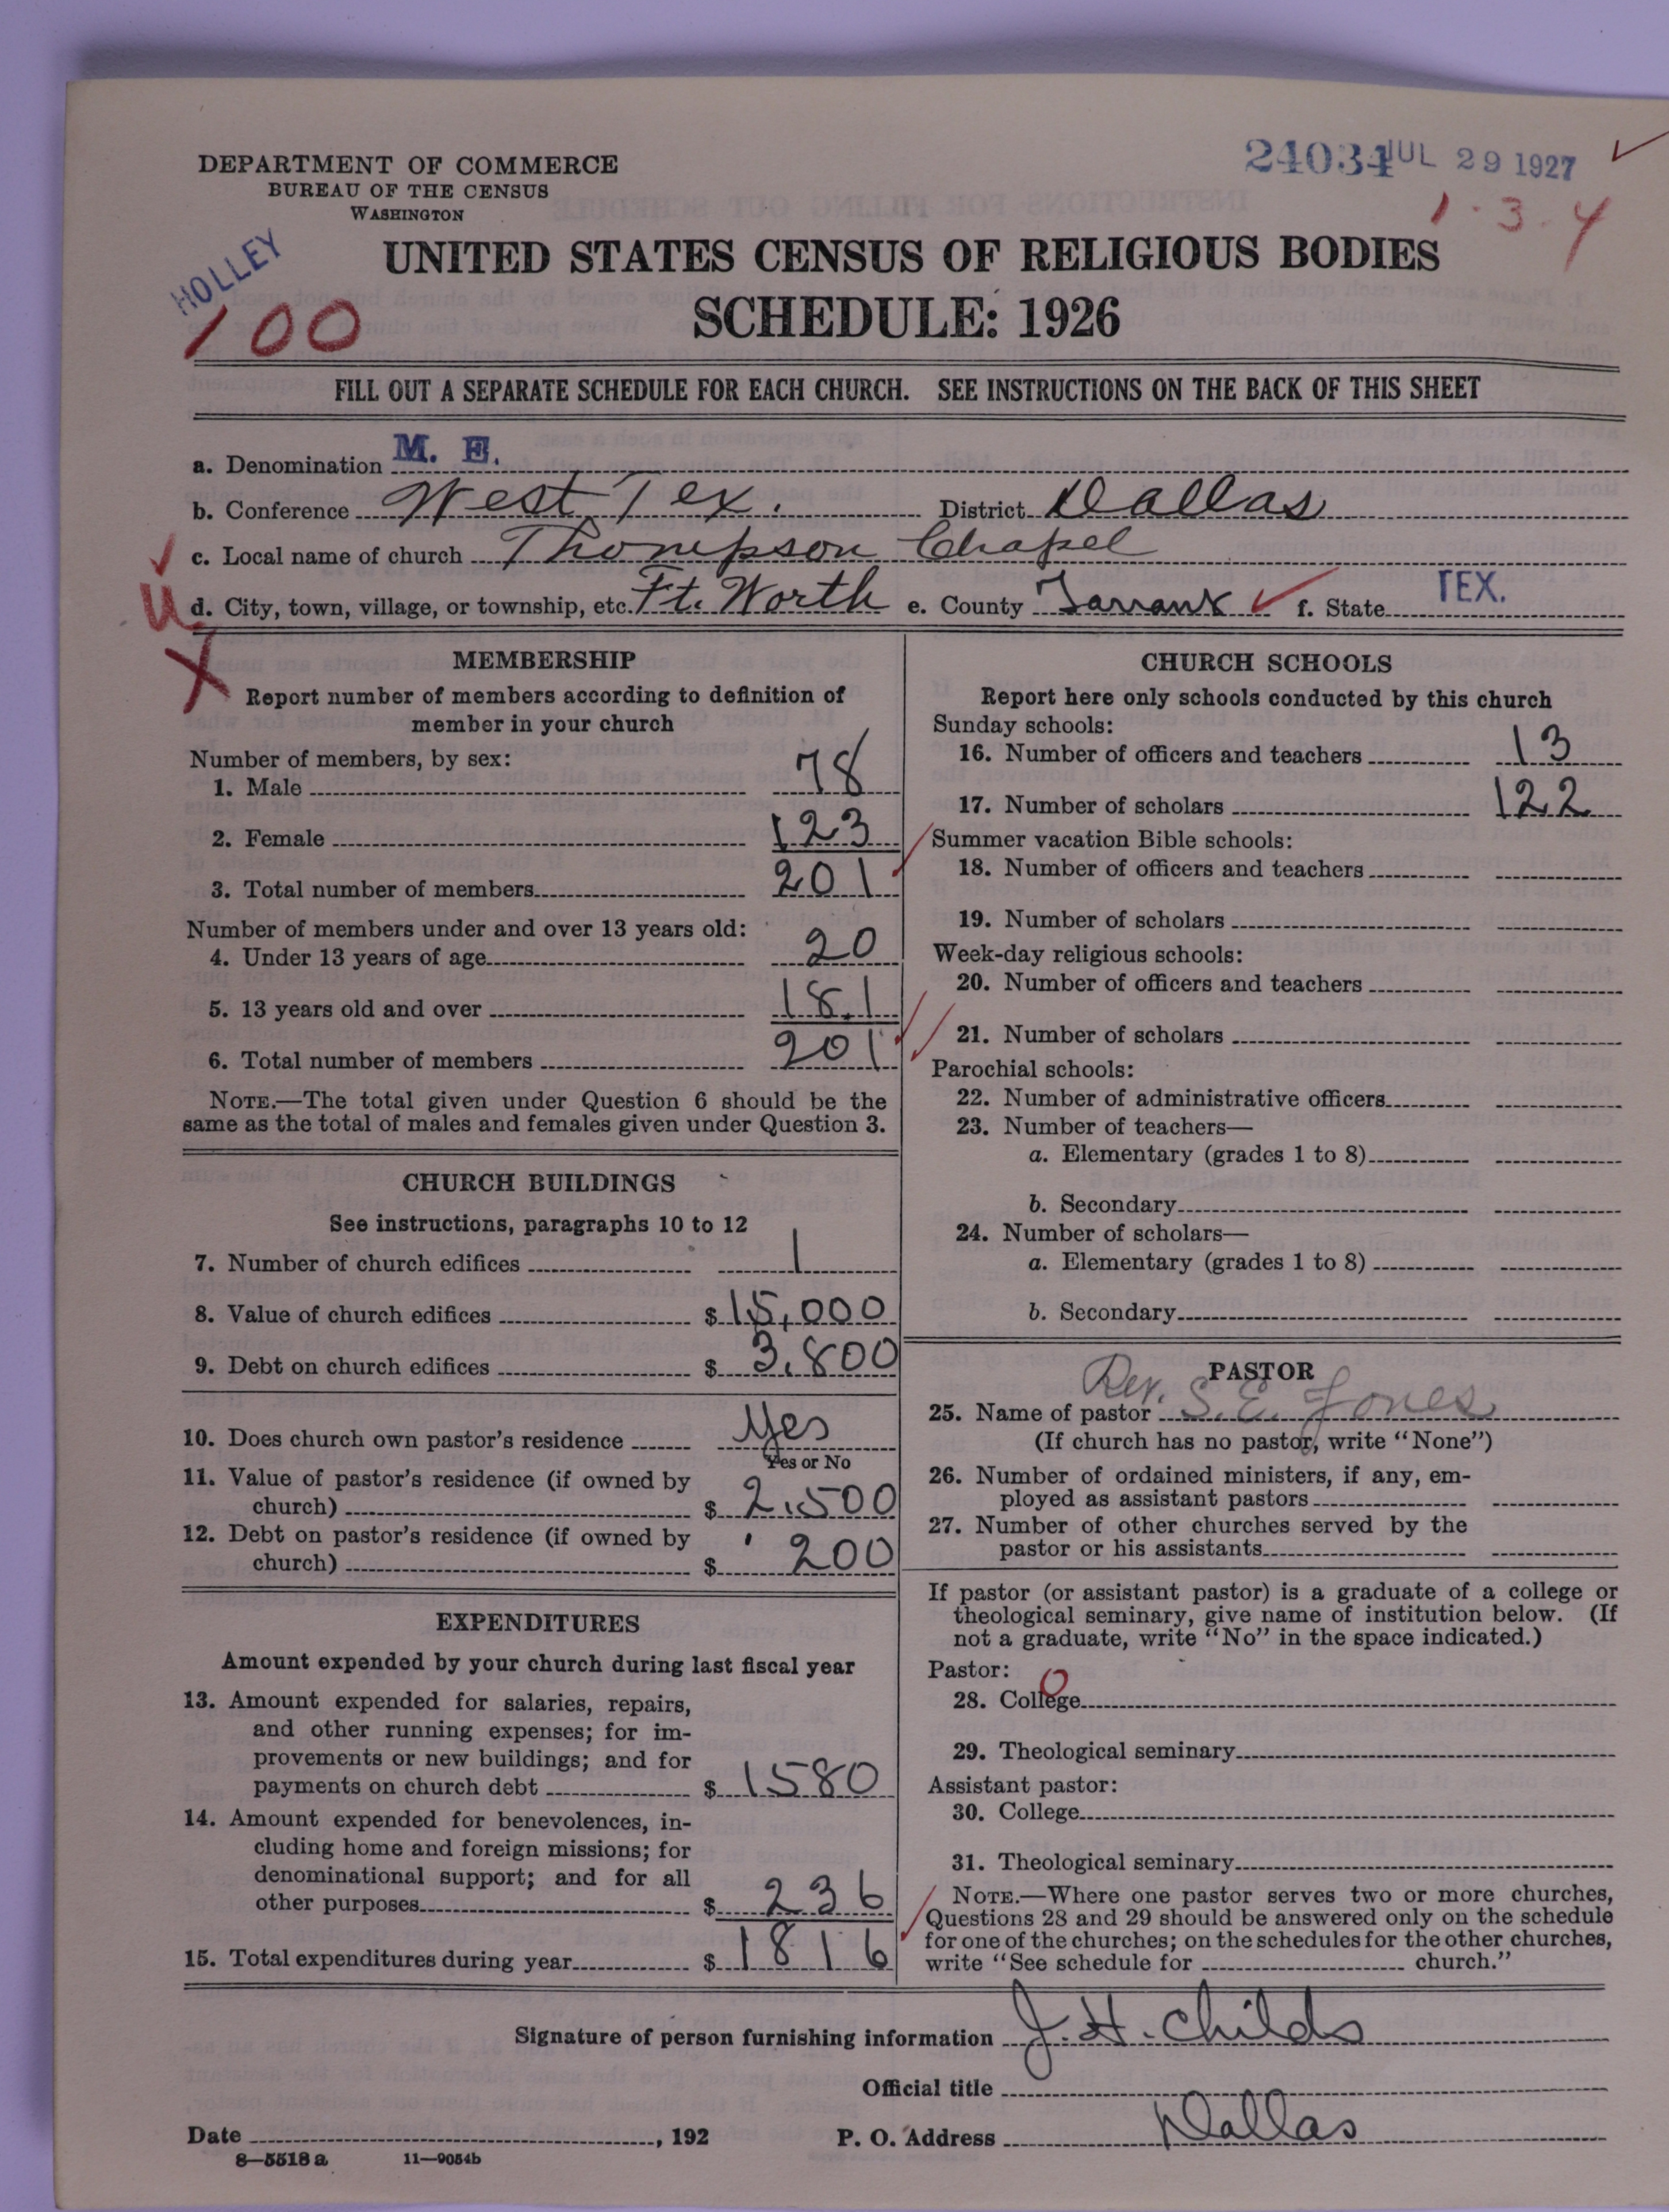 24034 JUL 29 1927
1 - 3 - 4
DEPARTMENT OF COMMERCE
BUREAU OF THE CENSUS
WASHINGTON
HOLLEY
100
UNITED STATES CENSUS OF RELIGIOUS BODIES
SCHEDULE: 1926
FILL OUT A SEPARATE SCHEDULE FOR EACH CHURCH. SEE INSTRUCTIONS ON THE BACK OF THIS SHEET
a. Denomination M. E.
b. Conference West Tex. District Dallas
c. Local name of church Thompson Chapel
U d. City, town, village, or township, etc. Ft. Worth e. County Tarrant f. State TEX.
X
MEMBERSHIP
Report number of members according to definition of
member in your church
Number of members, by sex:
1. Male 78
2. Female 123
3. Total number of members 201
Number of members under and over 13 years old:
4. Under 13 years of age 20
5. 13 years old and over 181
6. Total number of members 201
NOTE.—The total given under Question 6 should be the
same as the total of males and females given under Question 3.
CHURCH BUILDINGS
See instructions, paragraphs 10 to 12
7. Number of church edifices 1
8. Value of church edifices $15,000
9. Debt on church edifices $3,800
10. Does church own pastor's residence Yes
Yes or No
11. Value of pastor's residence (if owned by
church) $2,500
12. Debt on pastor's residence (if owned by
church) $200
EXPENDITURES
Amount expended by your church during last fiscal year
13. Amount expended for salaries, repairs,
and other running expenses; for im-
provements or new buildings; and for
payments on church debt $1580
14. Amount expended for benevolences, in-
cluding home and foreign missions; for
denominational support; and for all
other purposes $236
15. Total expenditures during year $1816
CHURCH SCHOOLS
Report here only schools conducted by this church
Sunday schools:
16. Number of officers and teachers 13
17. Number of scholars 122
Summer vacation Bible schools:
18. Number of officers and teachers
19. Number of scholars
Week-day religious schools:
20. Number of officers and teachers
21. Number of scholars
Parochial schools:
22. Number of administrative officers
23. Number of teachers—
a. Elementary (grades 1 to 8)
b. Secondary
24. Number of scholars—
a. Elementary (grades 1 to 8)
b. Secondary
PASTOR
25. Name of pastor Rev. S. E. Jones
(If church has no pastor, write "None")
26. Number of ordained ministers, if any, em-
ployed as assistant pastors
27. Number of other churches served by the
pastor or his assistants
If pastor (or assistant pastor) is a graduate of a college or
theological seminary, give name of institution below. (If
not a graduate, write "No" in the space indicated.)
Pastor: 0
28. College
29. Theological seminary
Assistant pastor:
30. College
31. Theological seminary
NOTE.—Where one pastor serves two or more churches,
Questions 28 and 29 should be answered only on the schedule
for one of the churches; on the schedules for the other churches,
write "See schedule for church."
Signature of person furnishing information J. H. Childs
Official title
Date , 192 P. O. Address Dallas
8—5518 a 11—9054b